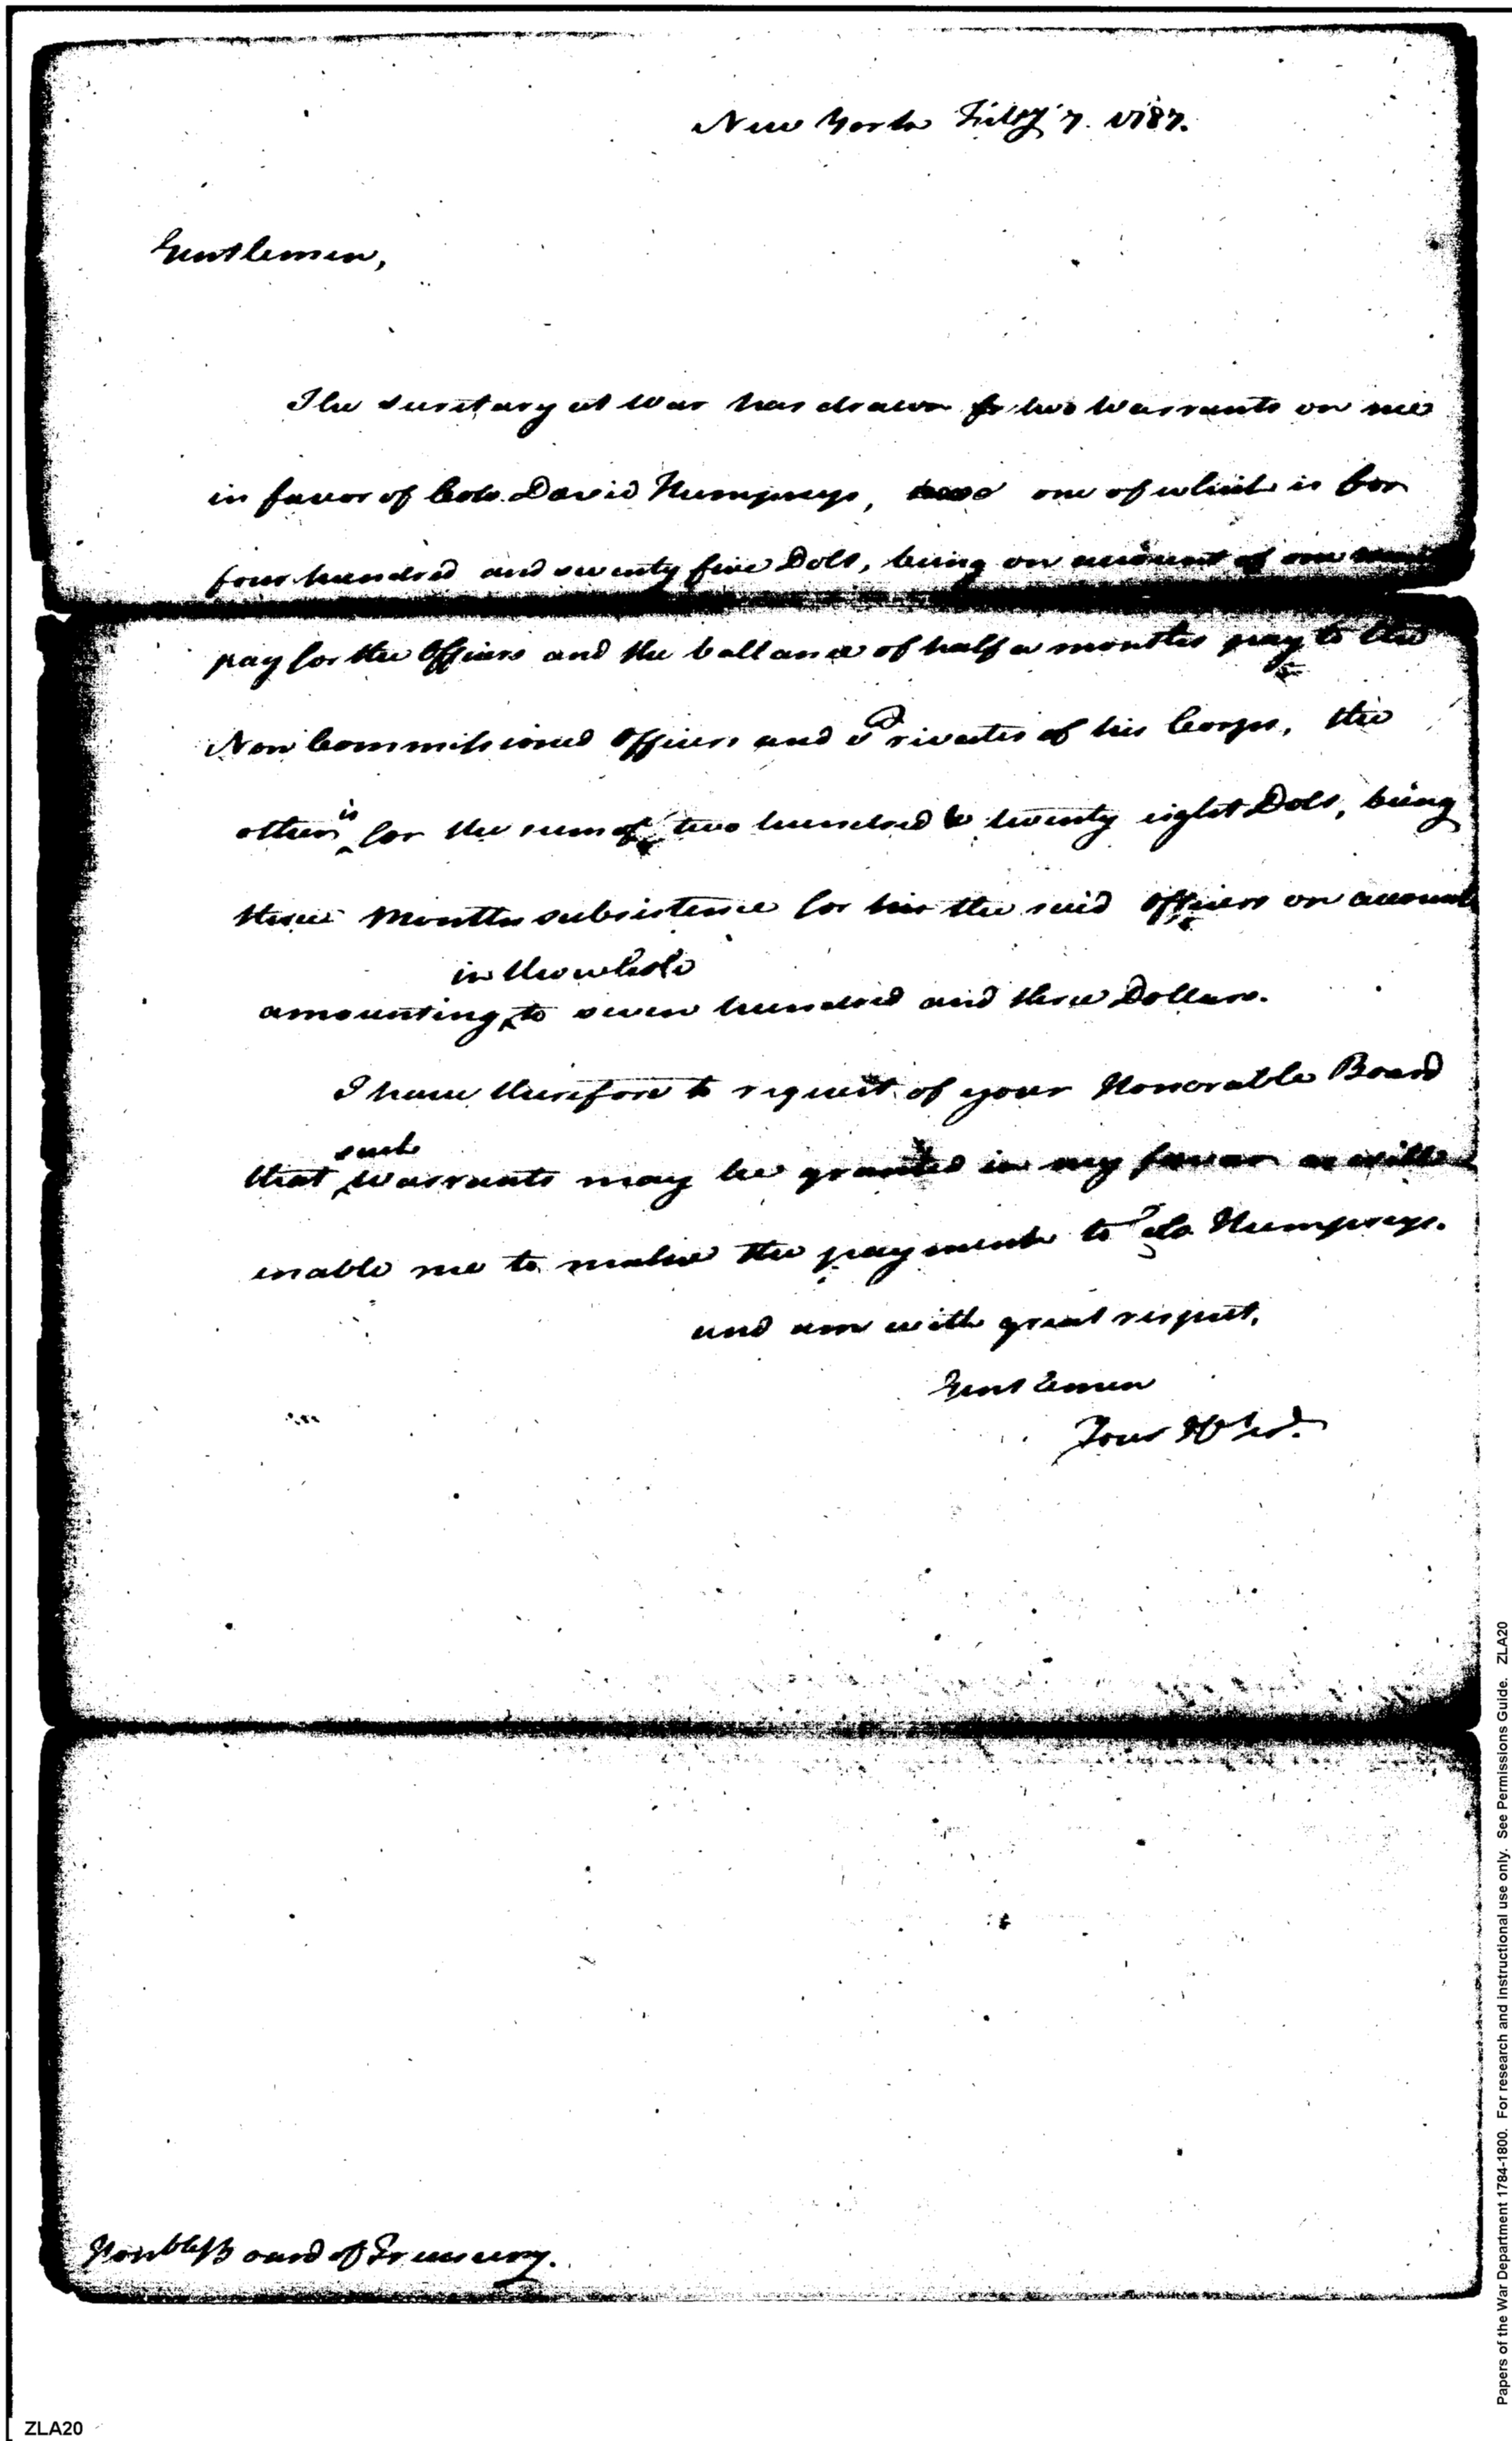 New York Feby 7. 1787.
Gentlemen,
The Secretary at War has drawn two Warrants on me
in favor of Colo. David Humpreys, one of which is for
four hundred and seventy five Dols, being on account of one
pay for the Officers and the ballance of half a months pay to the
Non Commissioned Officers and Privates of his Corps, the
is
other for the sum of two hundred & twenty eight Dols, being
three Months subsistence for his the said Officers on account
in the whole
amounting to seven hundred and three Dollars.
I have therefore to request of your Honorable Board
such
that Warrants may be granted in my favor as will
enable me to make the payment to Colo Humpreys.
and am with great respect,
Gentlemen
Your
Honble Board of Treasury.
ZLA20
Papers of the War Department 1784-1800. For research and instructional use only. See Permissions Guide. ZLA20